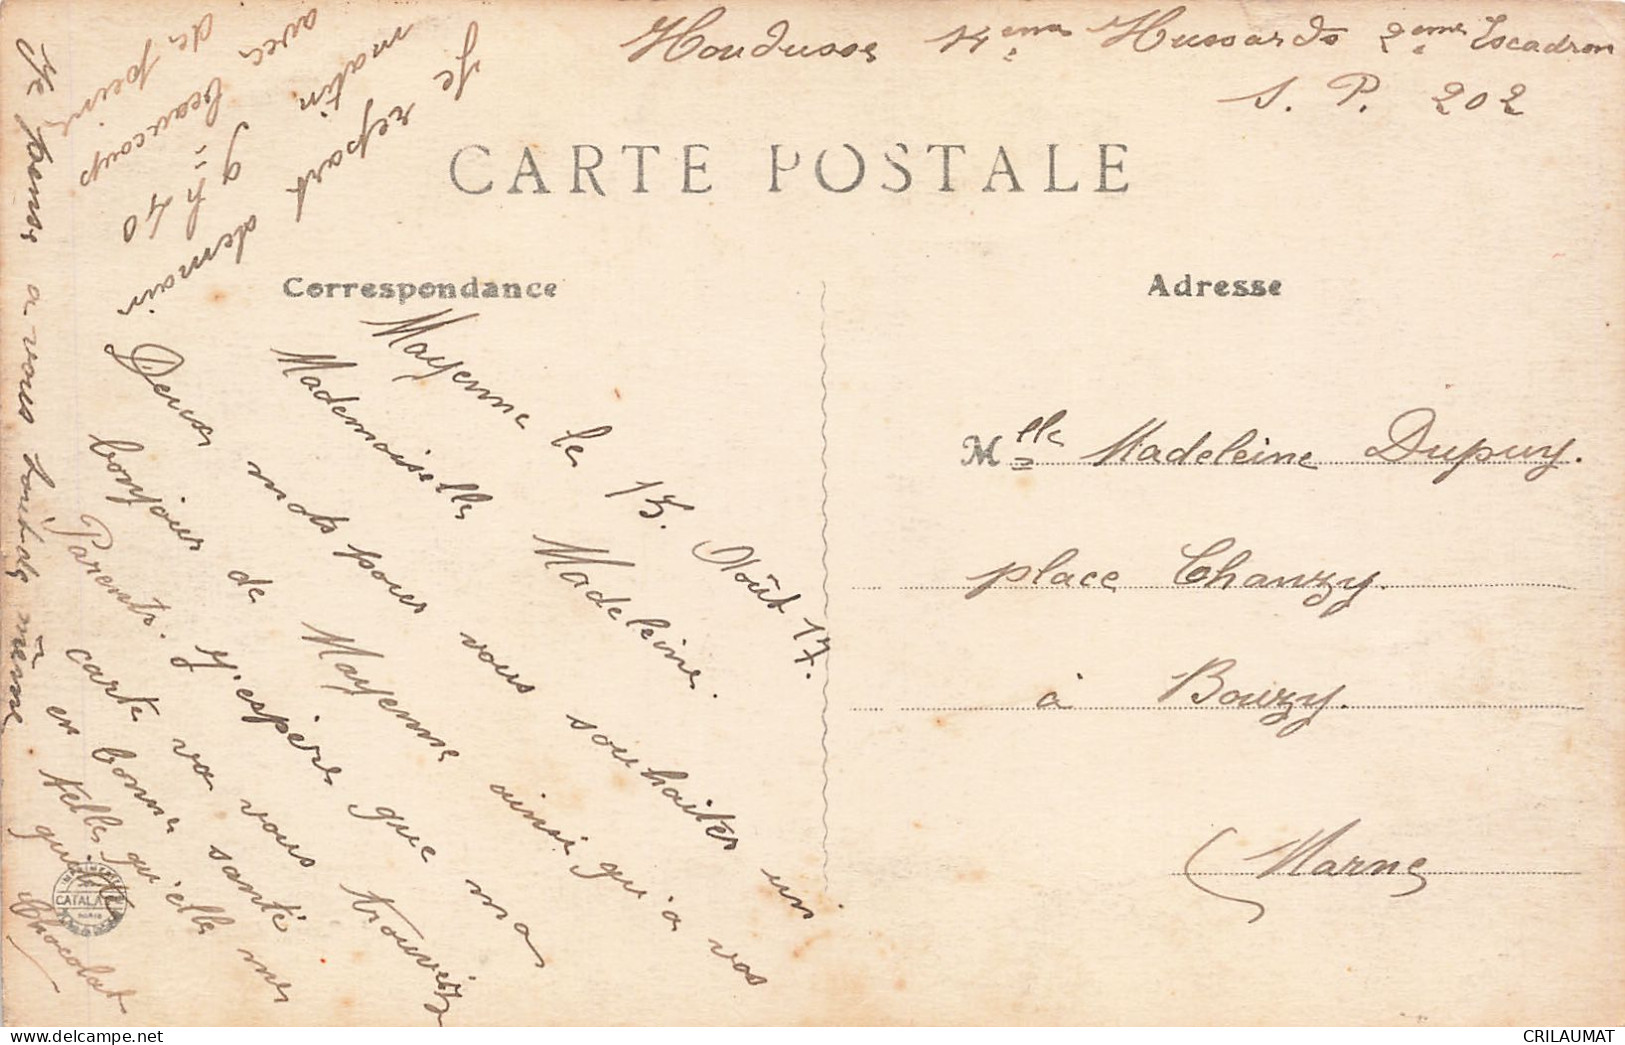 Houdusse 14ème Hussards 2ème Escadron
S. P. 202
CARTE POSTALE
Correspondance
Adresse
Mayenne le 15. Août 17.
Mademoiselle Madeleine.
Deux mots pour vous souhaiter un
bonjour de Mayenne ainsi qu'à vos
Parents. J'espère que ma
carte va vous trouver
en bonne santé
telle qu'elle me
quitte
Chocolat
Je pense à vous tout de même
Je repart demain
matin 9 h 40
avec beaucoup
de peine
Mlle Madeleine Dupuy.
place Chanzy.
à Bouzy.
(Marne
CATALA
PARIS
CRILAUMAT